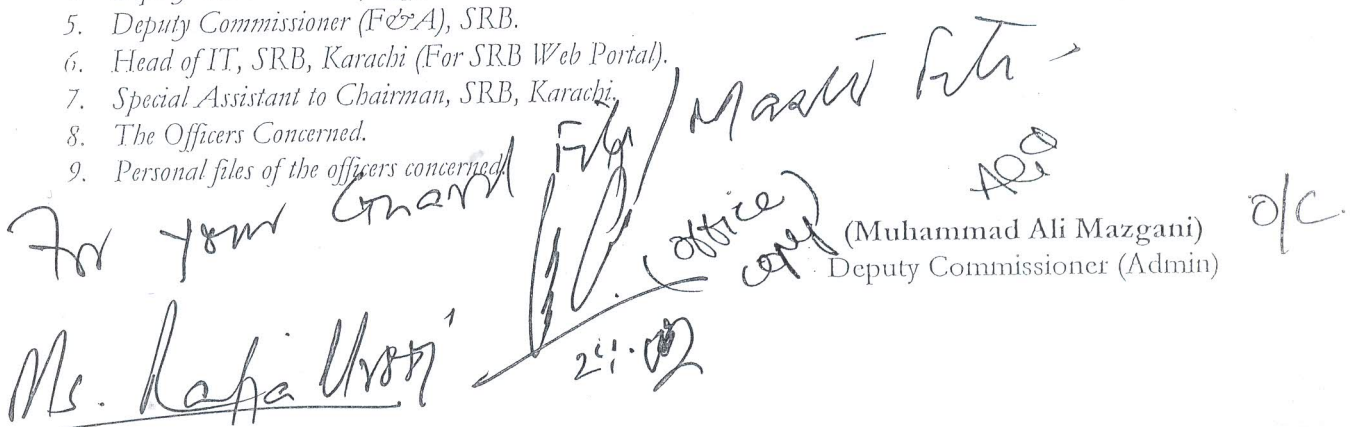 5. Deputy Commissioner (F&A), SRB.
6. Head of IT, SRB, Karachi (For SRB Web Portal).
7. Special Assistant to Chairman, SRB, Karachi.
8. The Officers Concerned.
9. Personal files of the officers concerned.
For your Guard File / Master File -
Ali
(office copy)
(Muhammad Ali Mazgani)
O/C.
Deputy Commissioner (Admin)
Ms.